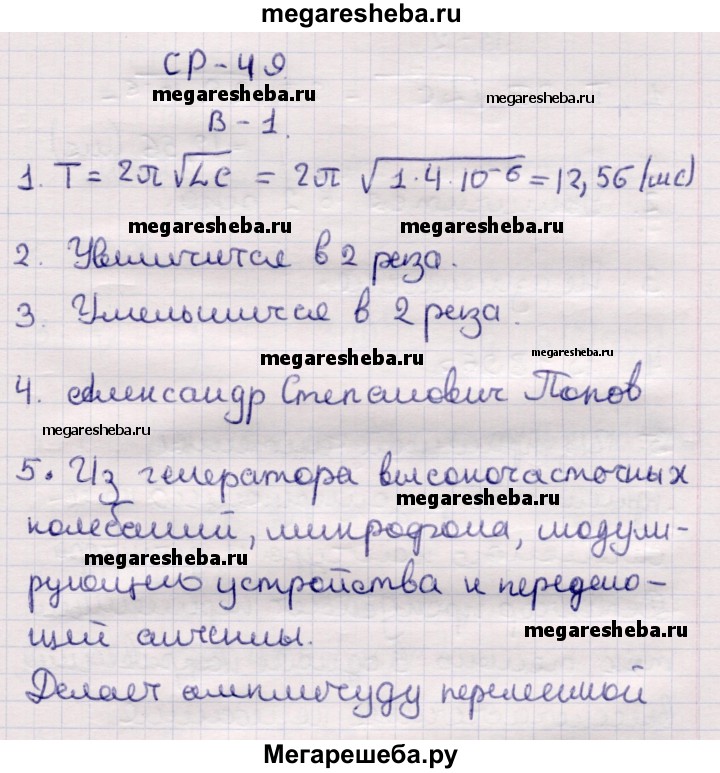 megaresheba.ru
СР-49
megaresheba.ru
megaresheba.ru
В-1.
1. T = 2π√LC = 2π √1·4·10⁻⁶ = 12,56 (мс)
megaresheba.ru
megaresheba.ru
2. Увеличится в 2 раза.
3. Уменьшится в 2 раза.
megaresheba.ru
megaresheba.ru
4. Александр Степанович Попов
megaresheba.ru
5. Из генератора высокочастотных
megaresheba.ru
колебаний, микрофона, модули-
megaresheba.ru
рующего устройства и передаю-
щей антенны.
megaresheba.ru
Делает амплитуду переменной
Мегарешеба.ру